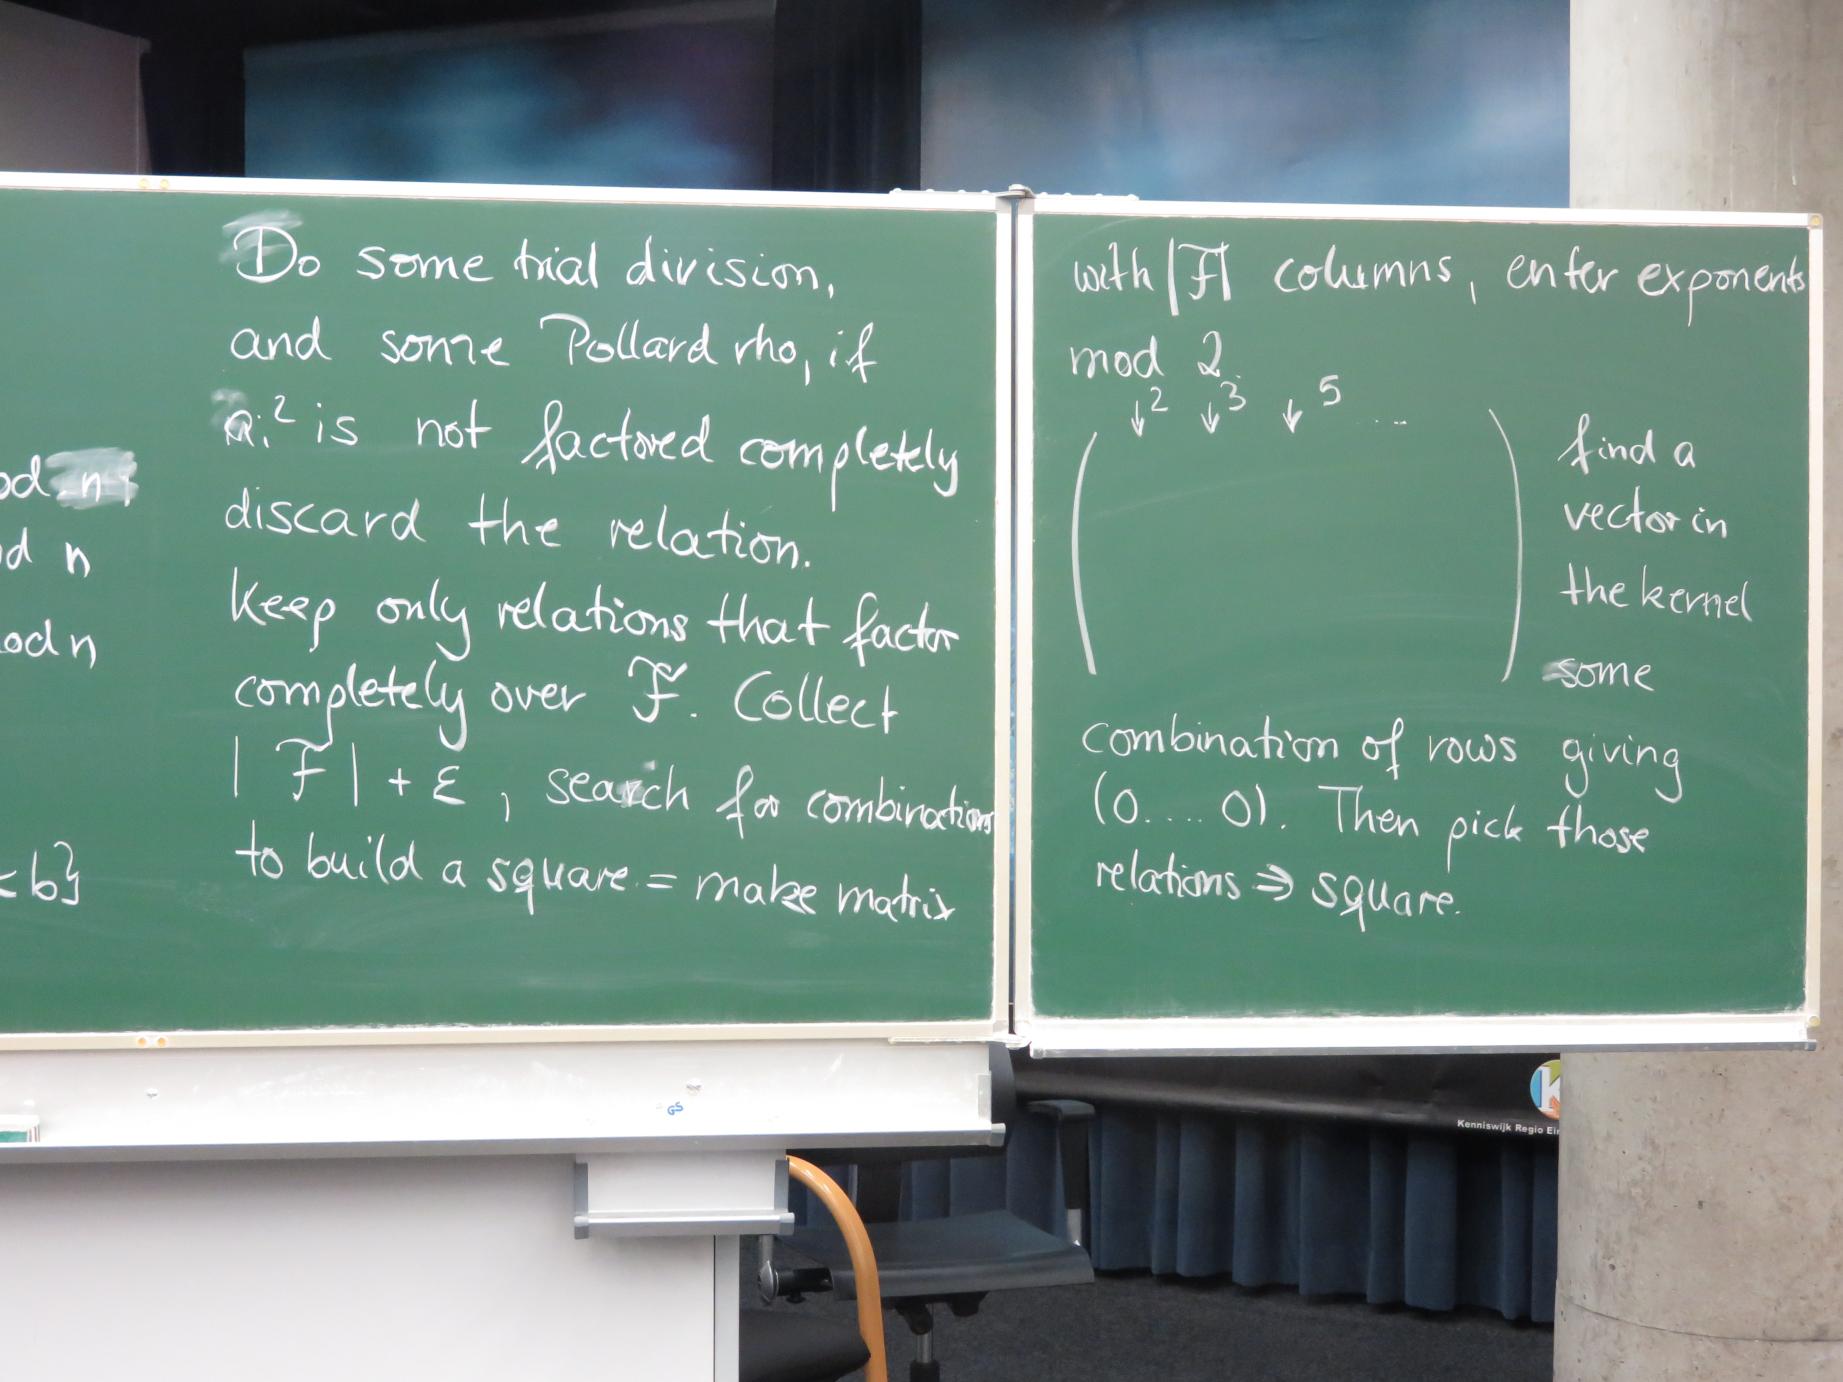 od n
d n
od n
< b}
Do some trial division,
and some Pollard rho, if
a_i² is not factored completely
discard the relation.
Keep only relations that factor
completely over F. Collect
|F| + ε, search for combinations
to build a square = make matrix
with |F| columns, enter exponents
mod 2.
↓2 ↓3 ↓5 ...
find a
vector in
the kernel
some
combination of rows giving
(0....0). Then pick those
relations ⇒ square.
GS
Kenniswijk Regio Ei